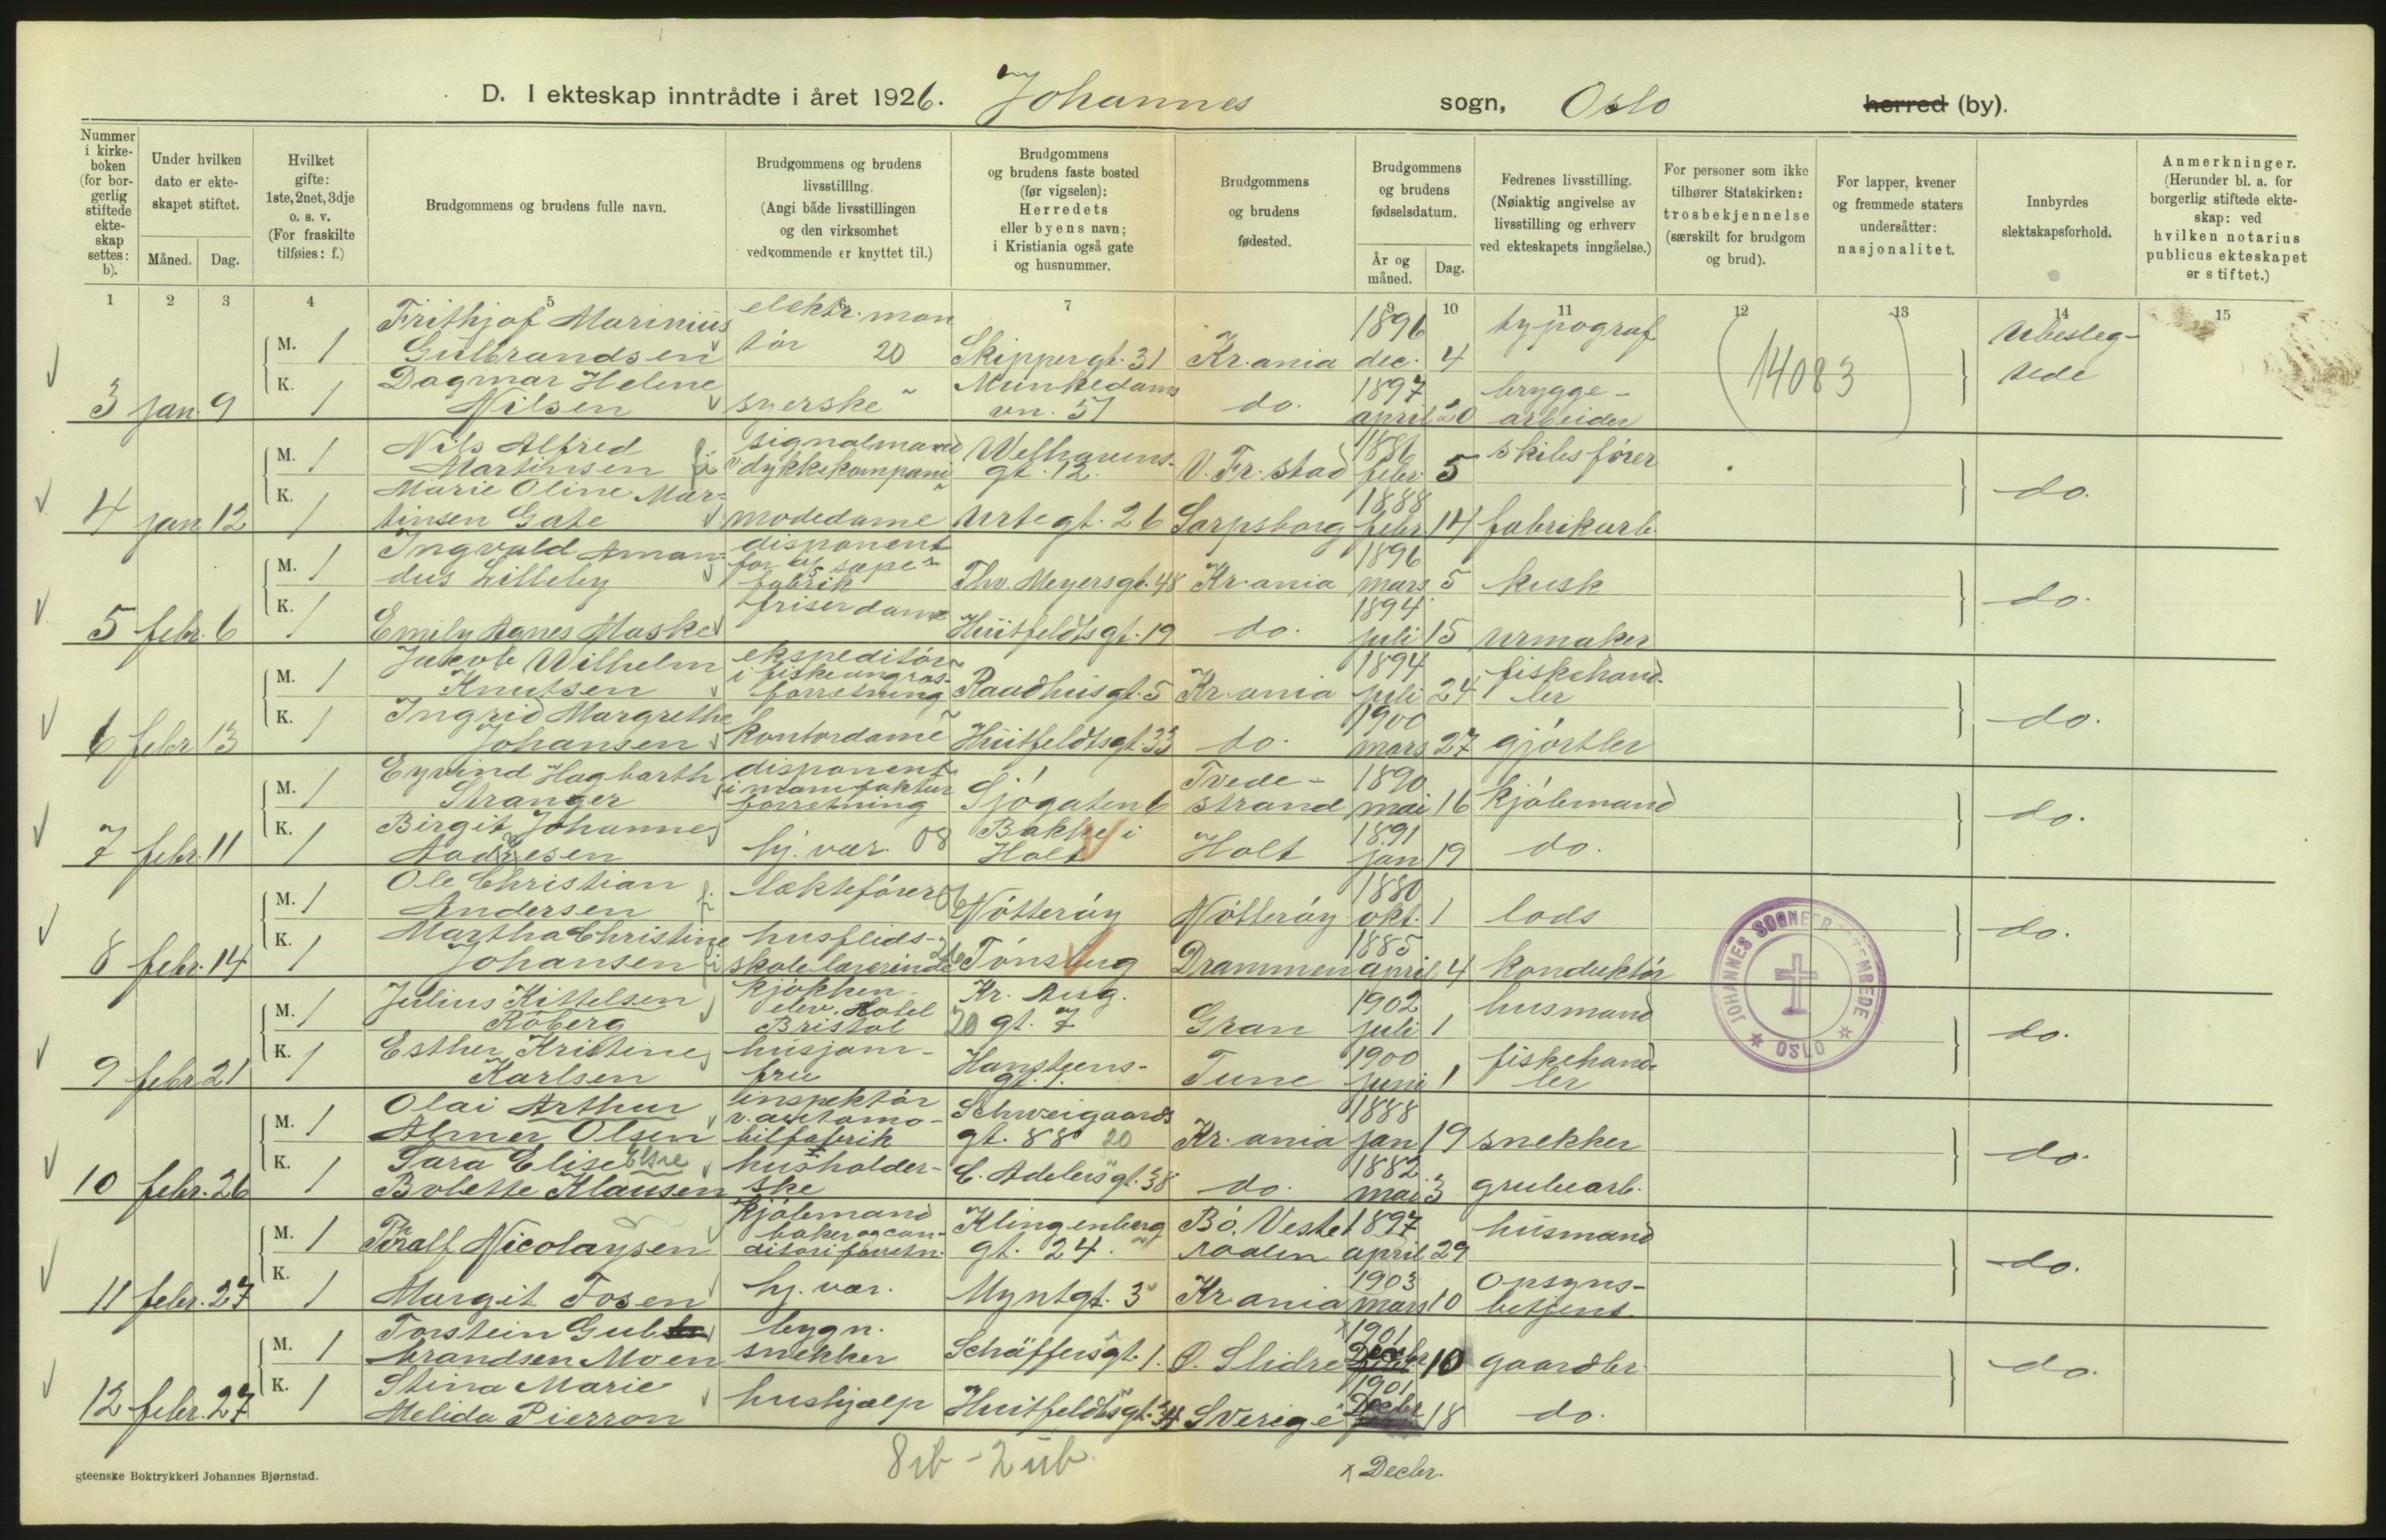 D. I ekteskap inntrådte i året 1926. Johannes sogn, Oslo herred (by).
Nummer i kirke-boken (for bor-gerlig stiftede ekte-skap settes: b).
Under hvilken dato er ekte-skapet stiftet.
Måned. Dag.
Hvilket gifte: 1ste, 2net, 3dje o. s. v. (For fraskilte tilføies: f.)
Brudgommens og brudens fulle navn.
Brudgommens og brudens livsstilllng. (Angi både livsstillingen og den virksomhet vedkommende er knyttet til.)
Brudgommens og brudens faste bosted (før vigselen): Herredets eller byens navn; i Kristiania også gate og husnummer.
Brudgommens og brudens fødested.
Brudgommens og brudens fødselsdatum.
År og måned. Dag.
Fedrenes livsstilling. (Nøiaktig angivelse av livsstilling og erhverv ved ekteskapets inngåelse.)
For personer som ikke tilhører Statskirken: trosbekjennelse (særskilt for brudgom og brud).
For lapper, kvener og fremmede staters undersåtter: nasjonalitet.
Innbyrdes slektskapsforhold.
Anmerkninger. (Herunder bl. a. for borgerlig stiftede ekte-skap: ved hvilken notarius publicus ekteskapet er stiftet.)
1 2 3 4 5 6 7 9 10 11 12 13 14 15
M. 1 Frithjof Marinius Gulbrandsen elektr. mon tør 20 Skippergt. 31 Kr.ania 1896 dec. 4 typograf (14083) Ubesleg-tede
3 jan. 9 K. 1 Dagmar Helene Nilsen syerske Munkedams vn. 51 do. 1897 april 20 brygge-arbeider
M. 1 Nils Alfred Martinsen signalmand v dykkekompani Welhavens-gt. 12. V. Fr.stad 1886 febr. 5 skibsfører
4 jan 12 K. 1 Marie Oline Mar-tinsen Gate modedame Urtegt. 26 Sarpsborg 1888 febr. 14 fabrikarb. do.
M. 1 Ingvald Aman-dus Lilleby disponent for sæpe-fabrik Thv. Meyersgt. 48 Kr.ania 1896 mars 5 kusk
5 febr. 6 K. 1 Emily Agnes Maske friserdame Huitfeldtsgt. 19 do. 1894 juli 15 urmaker do.
M. 1 Jakob Wilhelm Knutsen ekspeditør i fiskeengros-forretning Raadhusgt. 5 Kr.ania 1894 juli 24 fiskehand-ler
6 febr 13 K. 1 Ingrid Margrethe Johansen kontordame Huitfeldtsgt. 33 do. 1900 mars 27 gjørtler do.
M. 1 Eyvind Hagbarth Stranger disponent i manufaktur forretning Sjøgaten 6 Tvede-strand 1890 mai 16 kjøbmand
7 febr. 11 K. 1 Birgit Johanne Andresen hj. vær. 08 Bakke i Holt Holt 1891 jan 19 do. do.
M. 1 Ole Christian Andersen lektefører Nøtterøy Nøtterøy 1880 okt. 1 lods
8 febr. 14 K. 1 Martha Christine Johansen husflids-skolelærerinde Tønsberg Drammen 1885 april 4 konduktør do.
M. 1 Julius Kittelsen Røberg kjøkken-elev. Hotel Bristol Kr. Aug. 20 gt. 7 Gran 1902 juli 1 husmand
9 febr 21 K. 1 Esther Kristine Karlsen husjom-fru Hansteens-gt. 1. Tune 1900 juni 1 fiskehand-ler do.
M. 1 Olai Arthur Abner Olsen inspektør v. automo-bilfabrik Schweigaards gt. 88 20 Kr.ania 1888 jan 19 snekker
10 febr. 26 K. 1 Sara Elise Else Bolette Klausen husholder-ske C. Adelersgt. 38 do. 1882 mai 3 grubearb. do.
M. 1 Thoralf Nicolaysen kjøbmand baker og con-ditoriforretn. Klingenberg gt. 24. Bø. Veste raalen 1897 april 29 husmand
11 febr. 27 K. 1 Margit Fosen hj. vær. Myntgt. 3 Kr.ania 1903 mars 10 Opsyns-betjent do.
M. 1 Torstein Gul brandsen Moen bygn. snekker Schäffersgt. 1. Ø. Slidre x 1901 Decbr 10 gaardbr
12 febr. 27 K. 1 Stina Marie Melida Pierron hushjælp Huitfeldtsgt. 34 Sverige 1901 Decbr 18 do. do.
JOHANNES SOGNEPRESTEMBEDE OSLO
8 ib - 2 ub.
x Decbr.
steenske Boktrykkeri Johannes Bjørnstad.